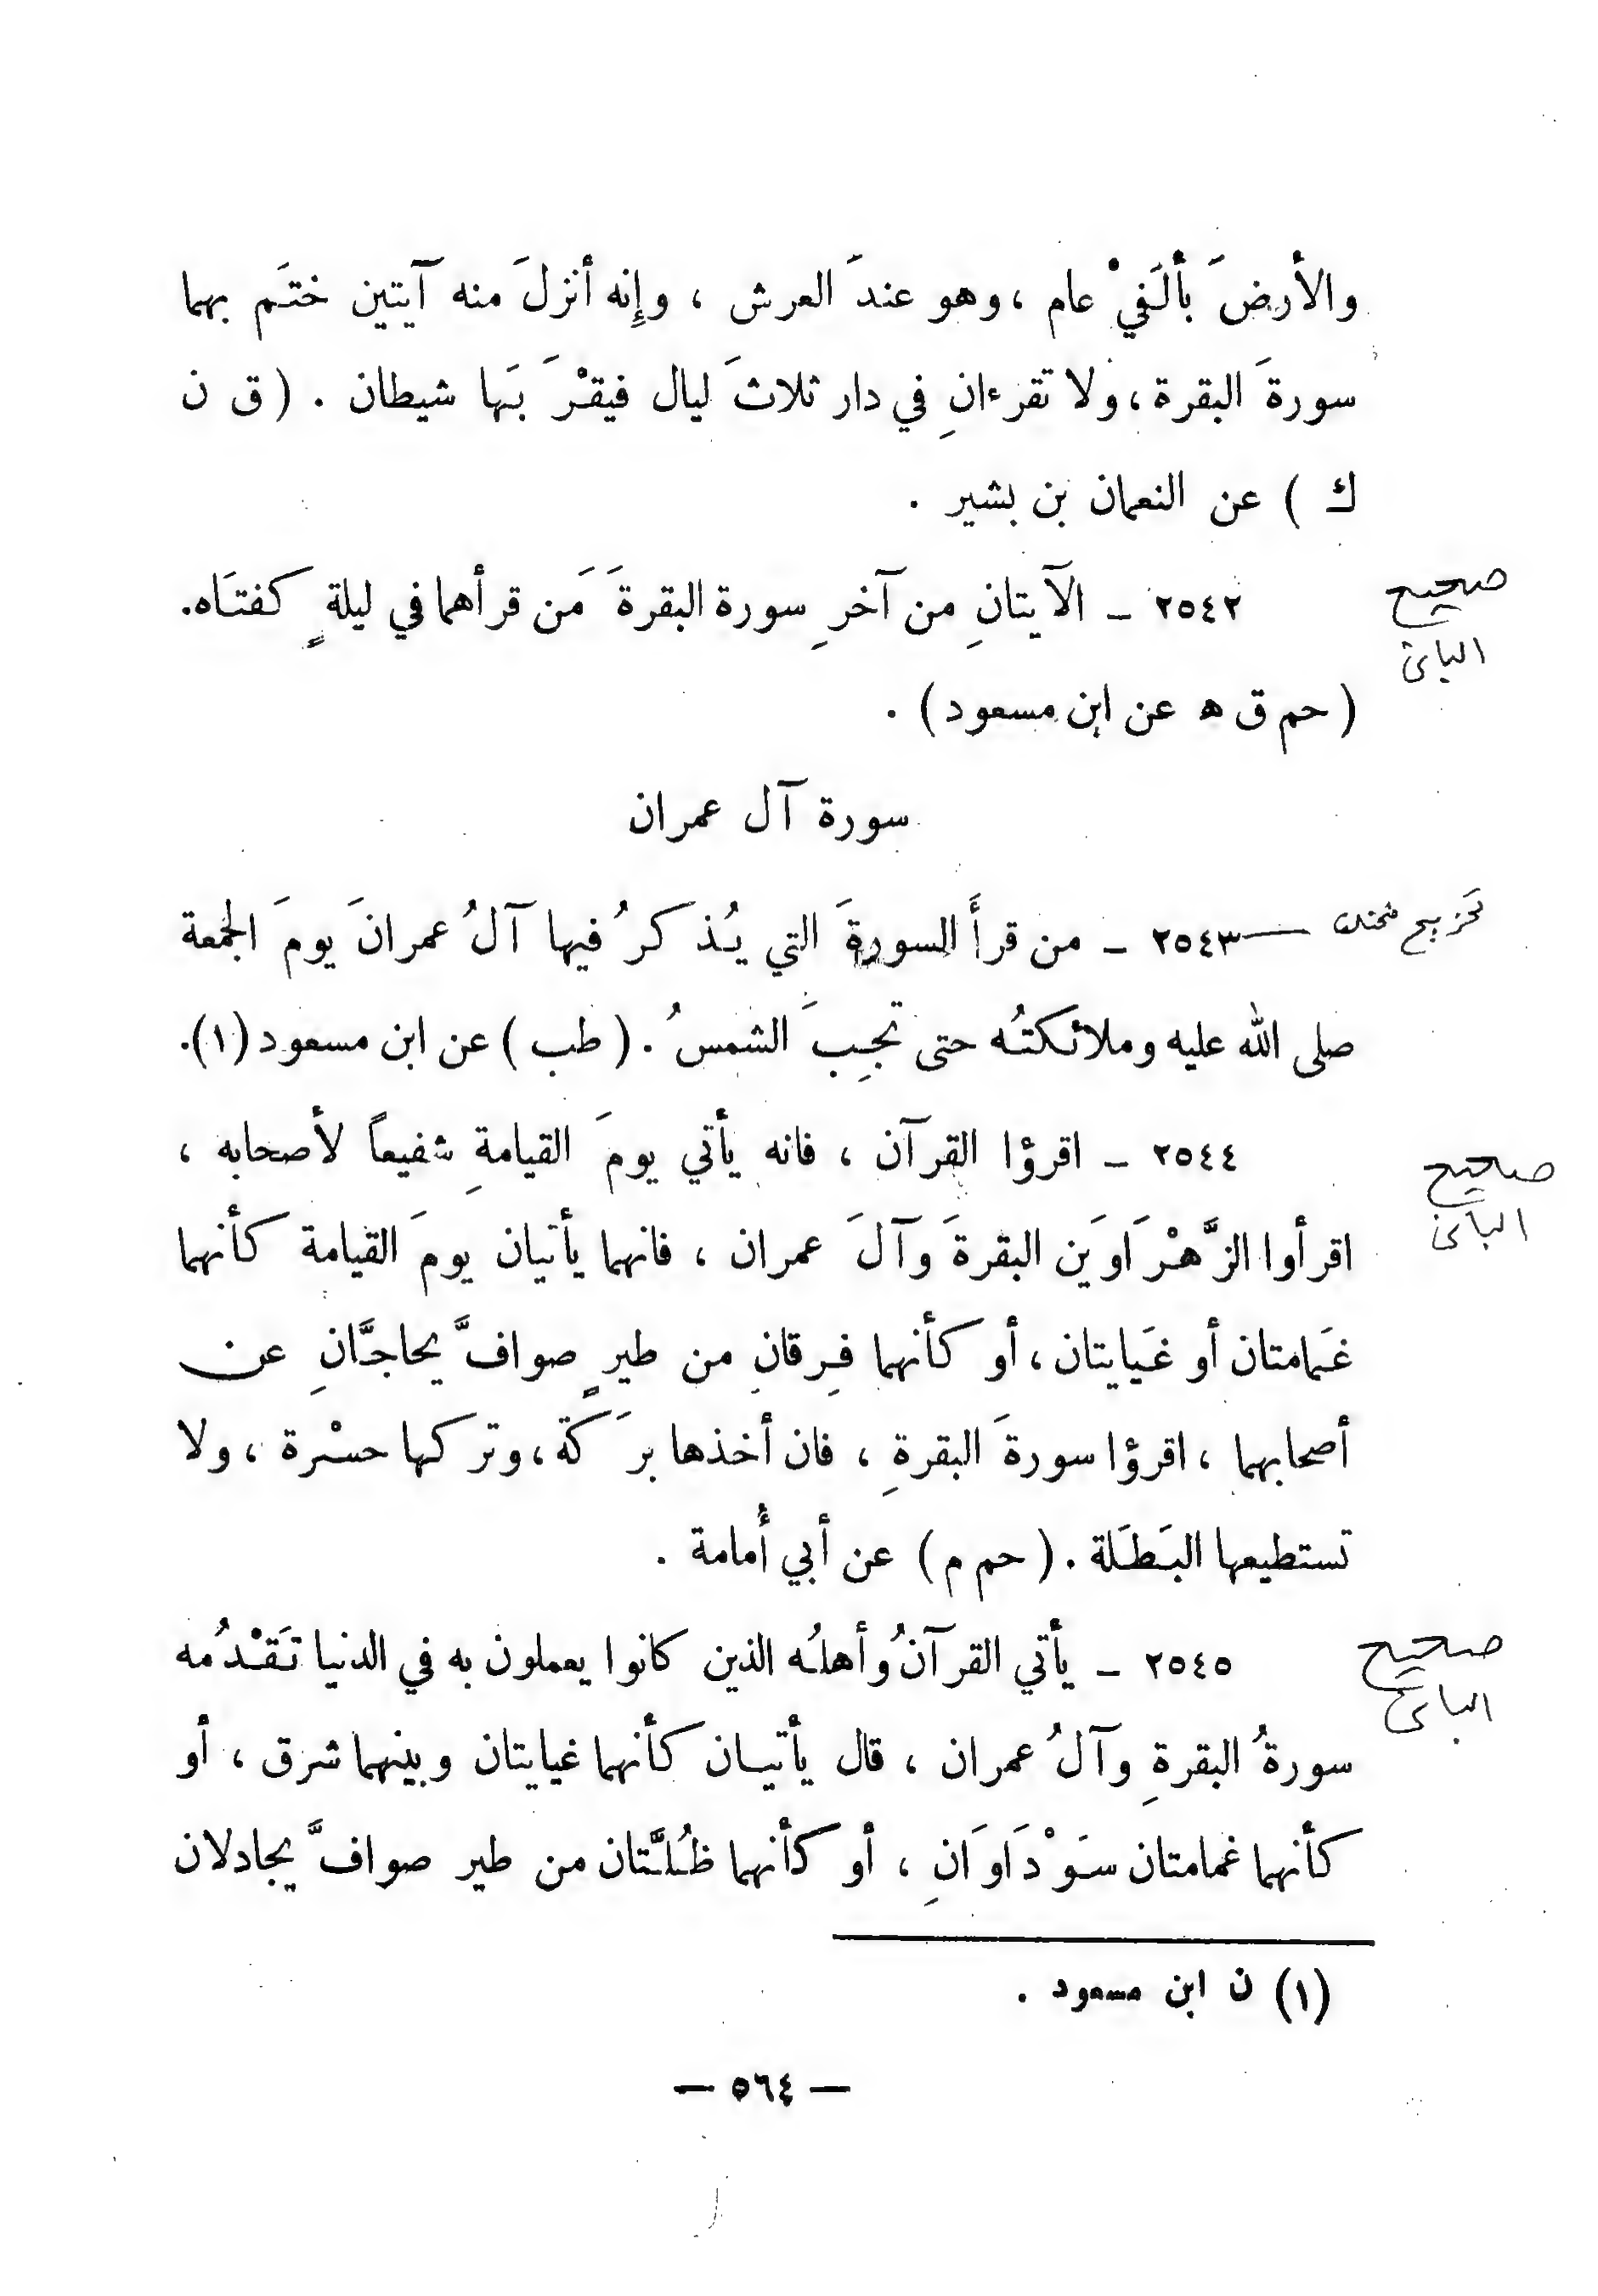 والأرضَ بألَفيْ عام ، وهو عندَ العرش ، وإنه أنزلَ منه آيتين ختَم بهما
سورةَ البقرة ، ولا تقرءانِ في دار ثلاثَ ليال فيقرْبَها شيطان . ( ق ن
ك ) عن النعمان بن بشير .
صحيح
٢٥٤٢ – الآيتانِ من آخرِ سورة البقرةَ مَن قرأهما في ليلةٍ كفتَاه.
البانى
( حم ق ه عن ابن مسعود ) .
سورة آل عمران
٢٥٤٣ – من قرأَ السورةَ التي يُذكرُ فيها آلُ عمرانَ يومَ الجمعة
صلى الله عليه وملائكتُه حتى تجِبَ الشمسُ . ( طب ) عن ابن مسعود (١).
٢٥٤٤ – اقرؤا القرآن ، فانه يأتي يومَ القيامةِ شفيعاً لأصحابه ،
صحيح
البانى
اقرأوا الزَّهْرَاوَين البقرةَ وآلَ عمران ، فانهما يأتيان يومَ القيامة كأنهما
غَمامتان أو غَيايتان ، أو كأنهما فِرقانِ من طيرٍ صوافَّ يحاجَّانِ عن
أصحابهما ، اقرؤا سورةَ البقرةِ ، فان أخذها برَكة ، وتركها حسْرة ، ولا
تستطيعها البَطَلة . ( حم م ) عن أبي أُمامة .
صحيح
٢٥٤٥ – يأتي القرآنُ وأهلُه الذين كانوا يعملون به في الدنيا تَقْدُمه
البانى
سورةُ البقرةِ وآلُ عمران ، قال يأتيان كأنهما غيايتان وبينهما شرق ، أو
كأنهما غمامتان سَوْدَاوَانِ ، أو كأنهما ظُلَّتان من طير صوافَّ يجادلان
(١) ن ابن مسعود .
— ٥٦٤ —